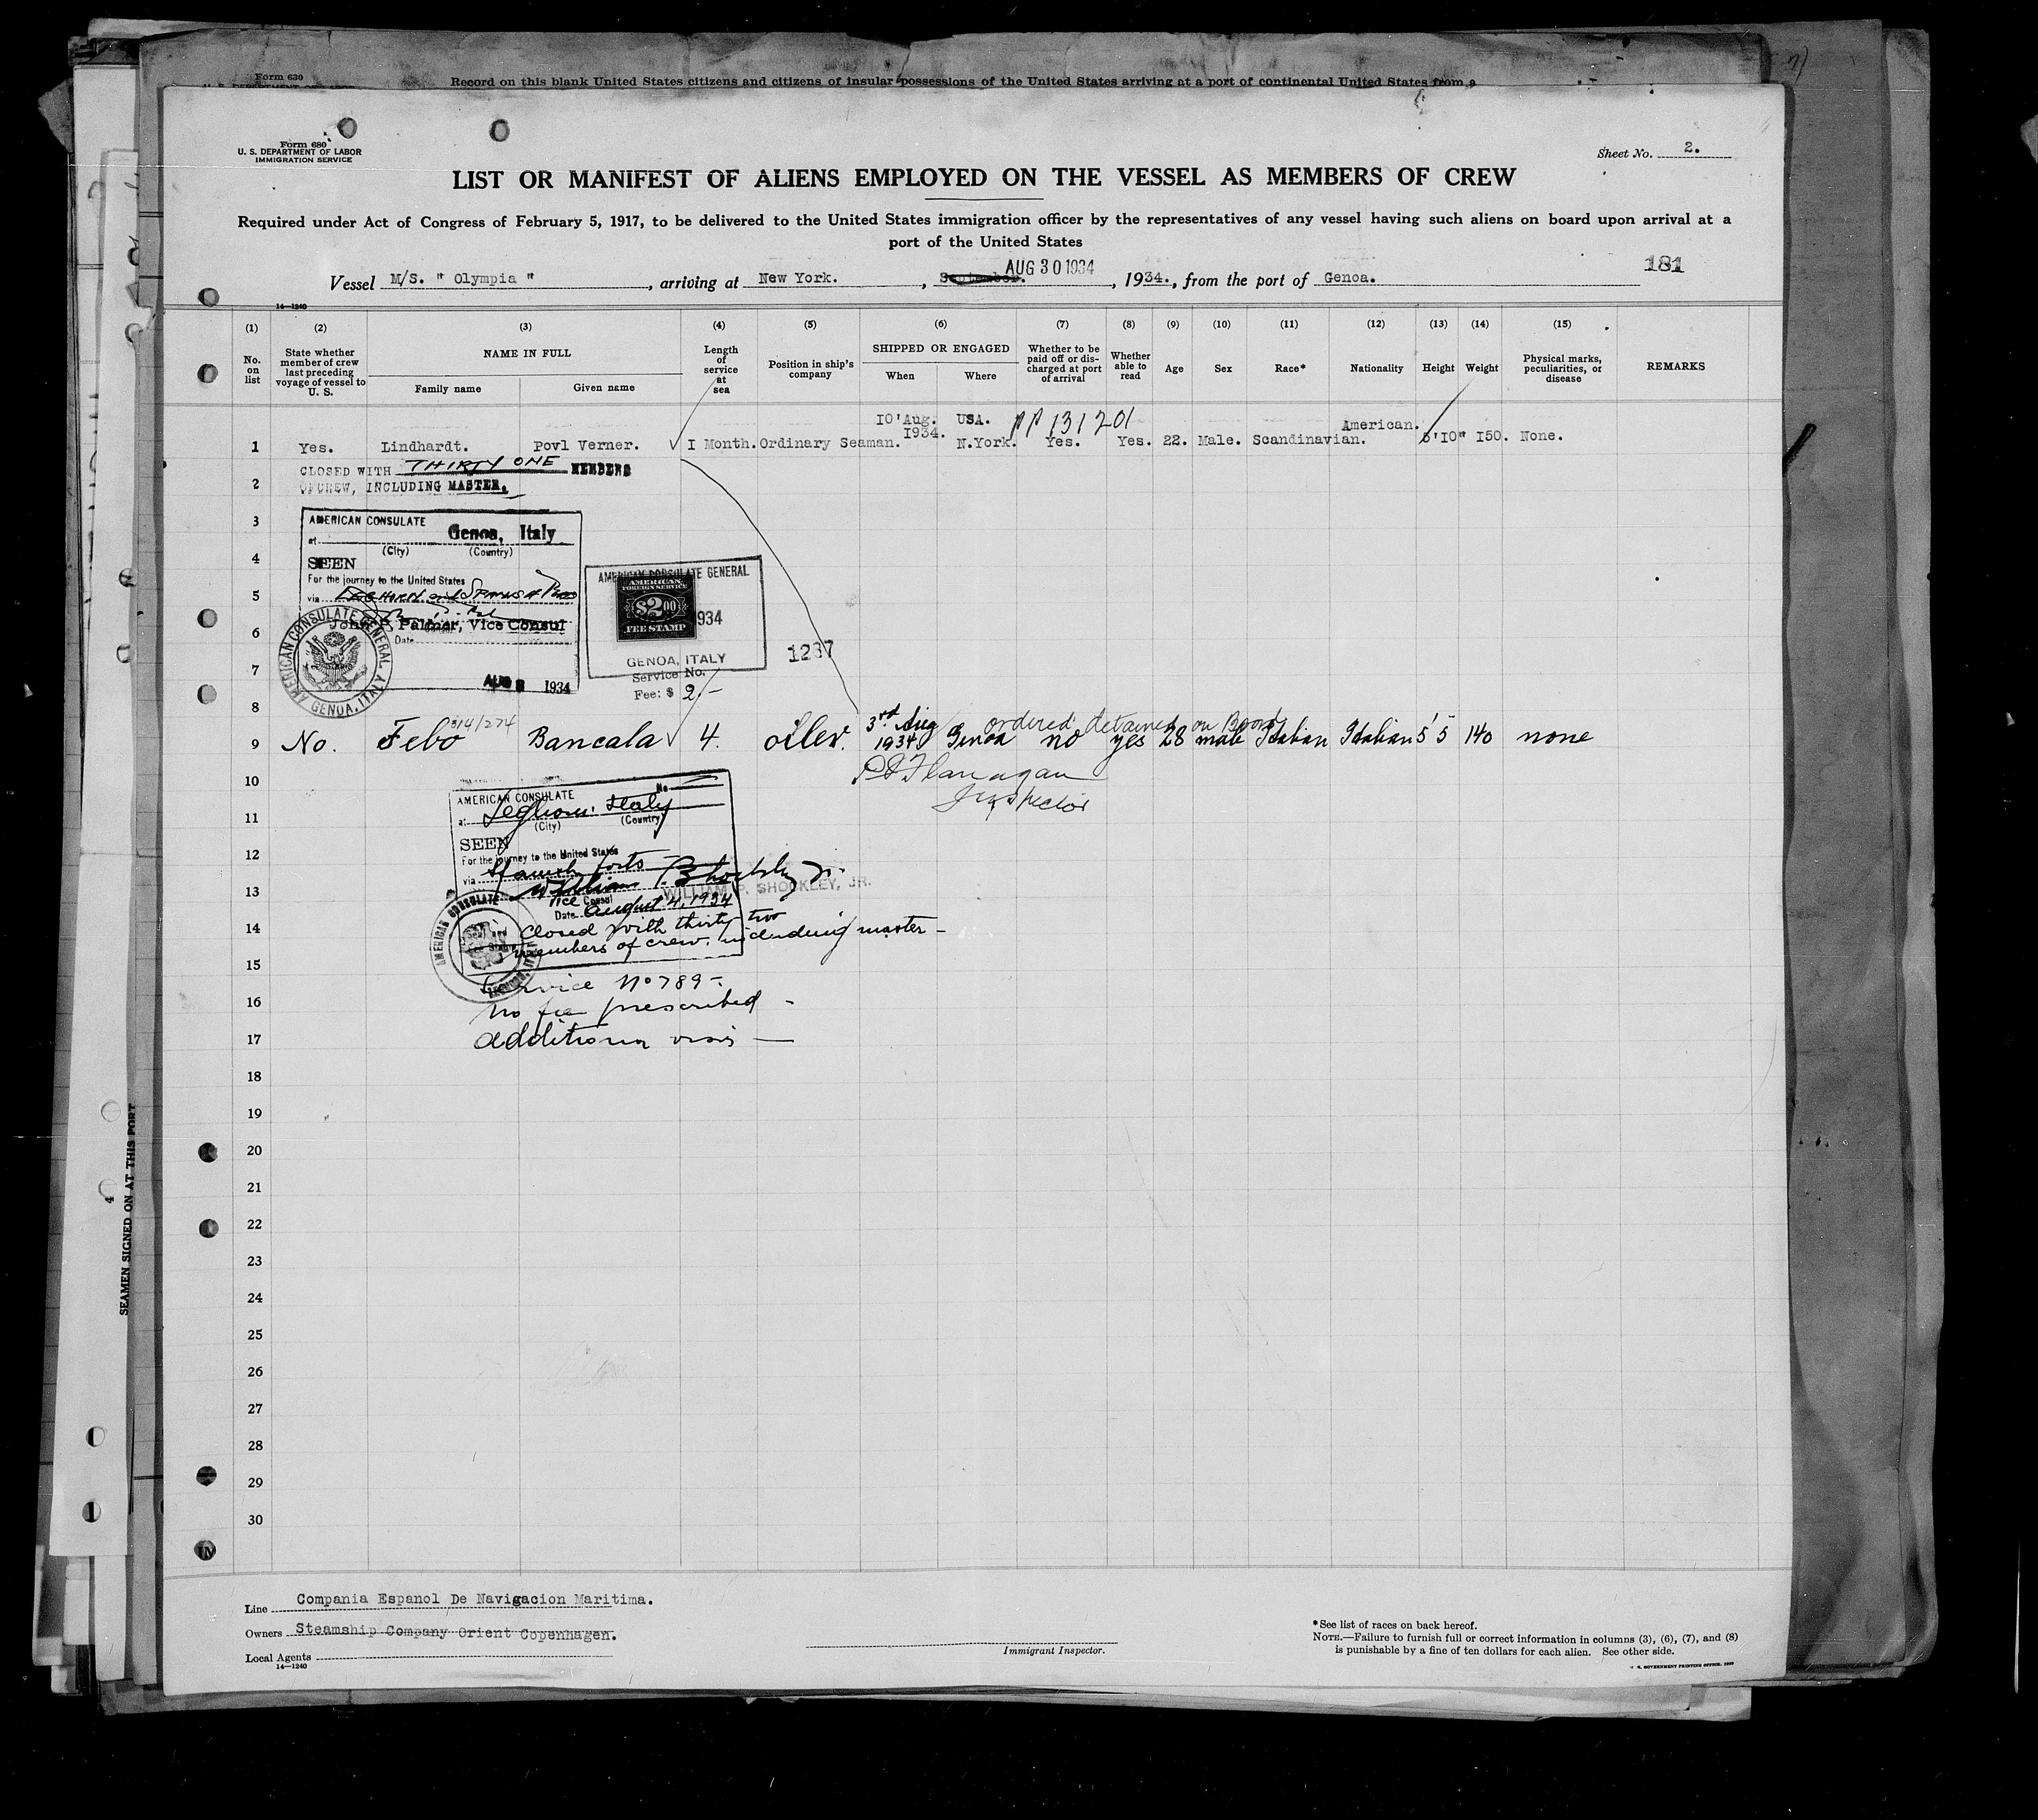 Form 630
Record on this blank United States citizens and citizens of insular possessions of the United States arriving at a port of continental United States from a
Form 680
U. S. DEPARTMENT OF LABOR
IMMIGRATION SERVICE
Sheet No. 2.
LIST OR MANIFEST OF ALIENS EMPLOYED ON THE VESSEL AS MEMBERS OF CREW
Required under Act of Congress of February 5, 1917, to be delivered to the United States immigration officer by the representatives of any vessel having such aliens on board upon arrival at a
port of the United States
Vessel M/S. " Olympia ", arriving at New York., September. AUG 30 1934, 1934., from the port of Genoa.
181
14—1240
(1) (2) (3) (4) (5) (6) (7) (8) (9) (10) (11) (12) (13) (14) (15)
No. on list
State whether member of crew last preceding voyage of vessel to U. S.
NAME IN FULL
Family name
Given name
Length of service at sea
Position in ship's company
SHIPPED OR ENGAGED
When
Where
Whether to be paid off or discharged at port of arrival
Whether able to read
Age
Sex
Race*
Nationality
Height
Weight
Physical marks, peculiarities, or disease
REMARKS
1 Yes. Lindhardt. Povl Verner. I Month. Ordinary Seaman. 10'Aug. 1934. USA. N.York. PP 131201 Yes. Yes. 22. Male. Scandinavian. American. 5'10" 150. None.
CLOSED WITH THIRTY ONE MEMBERS
2 OF CREW, INCLUDING MASTER.
3
AMERICAN CONSULATE
at Genoa, Italy
(City) (Country)
4
SEEN
For the journey to the United States
5
via
John P. Palmer, Vice Consul
6
Date
AUG 1934
AMERICAN CONSULATE GENERAL GENOA, ITALY
AMERICAN CONSULATE GENERAL
AMERICAN
FOREIGN SERVICE
$2.00
FEE STAMP
1934
GENOA, ITALY
Service No. 1237
7
Fee: $ 2.-
8
9 No. Febo 314/274 Bancala 4. oiler. 3rd Aug 1934 Genoa no yes 28 male Italian Italian 5'5" 140 none
ordered detained on Board
10 Flanagan
Inspector
11
AMERICAN CONSULATE No.
at Leghorn Italy
(City) (Country)
12
SEEN
For the journey to the United States
via Spanish Ports
13
William P. Shockley Jr.
WILLIAM P. SHOCKLEY, JR.
Vice Consul
Date August 4, 1934
14 Closed with thirty two
members of crew, including master -
AMERICAN CONSULATE
15
Service No 789-
16 No fee prescribed -
17 Additional visa —
18
19
20
21
22
23
24
25
26
27
28
29
30
SEAMEN SIGNED ON AT THIS PORT
4
Line Compania Espanol De Navigacion Maritima.
Owners Steamship Company Orient Copenhagen.
Local Agents
14—1240
Immigrant Inspector.
*See list of races on back hereof.
NOTE.—Failure to furnish full or correct information in columns (3), (6), (7), and (8)
is punishable by a fine of ten dollars for each alien. See other side.
GOVERNMENT PRINTING OFFICE